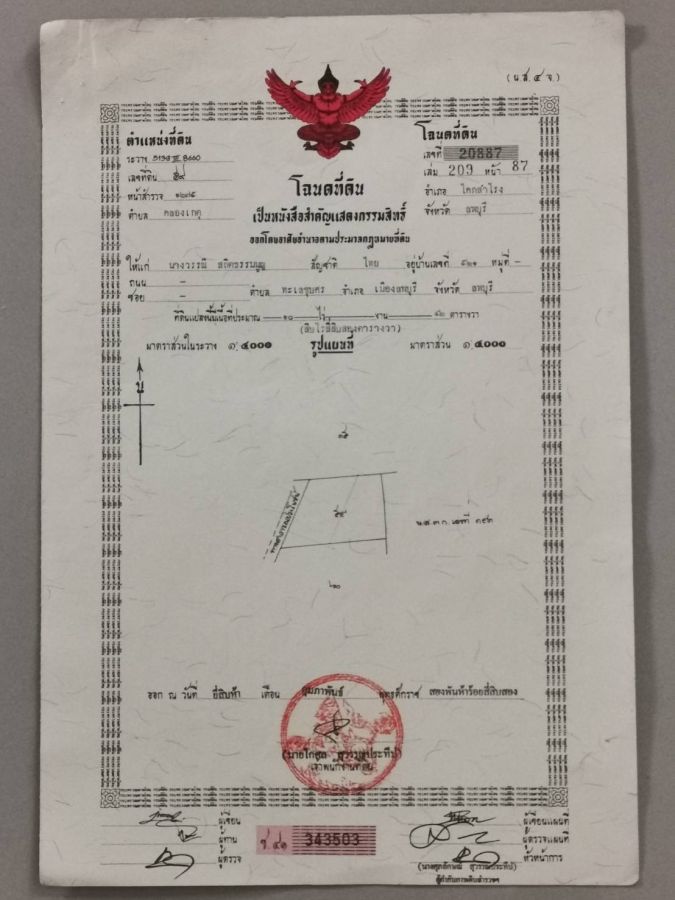 (น.ส. ๔ จ.)
ตำแหน่งที่ดิน
ระวาง 5139 III 8660
เลขที่ดิน ๕๙
หน้าสำรวจ
ตำบล คลองเกตุ
โฉนดที่ดิน
เลขที่ 20887
เล่ม 209 หน้า 87
อำเภอ โคกสำโรง
จังหวัด ลพบุรี
โฉนดที่ดิน
เป็นหนังสือสำคัญแสดงกรรมสิทธิ์
ออกโดยอาศัยอำนาจตามประมวลกฎหมายที่ดิน
ให้แก่ นางวรรณี สัญชาติ ไทย อยู่บ้านเลขที่ หมู่ที่ -
ถนน -
ซอย - ตำบล ทะเลชุบศร อำเภอ เมืองลพบุรี จังหวัด ลพบุรี
ที่ดินแปลงนี้มีเนื้อที่ประมาณ ๑๐ ไร่ - งาน ๔๒ ตารางวา
(สิบไร่สี่สิบสองตารางวา)
มาตราส่วนในระวาง ๑:๔๐๐๐ รูปแผนที่ มาตราส่วน ๑:๔๐๐๐
น
๕๙
ทางสาธารณประโยชน์
น.ส.๓ ก. เลขที่
๖๐
ออก ณ วันที่ ยี่สิบห้า เดือน กุมภาพันธ์ พุทธศักราช สองพันห้าร้อยสี่สิบสอง
(นายโกศล สุวรรณประทีป)
เจ้าพนักงานที่ดิน
ผู้เขียน
ผู้ทาน
ผู้ตรวจ
343503
ผู้เขียนแผนที่
ผู้ตรวจแผนที่
หัวหน้าการ